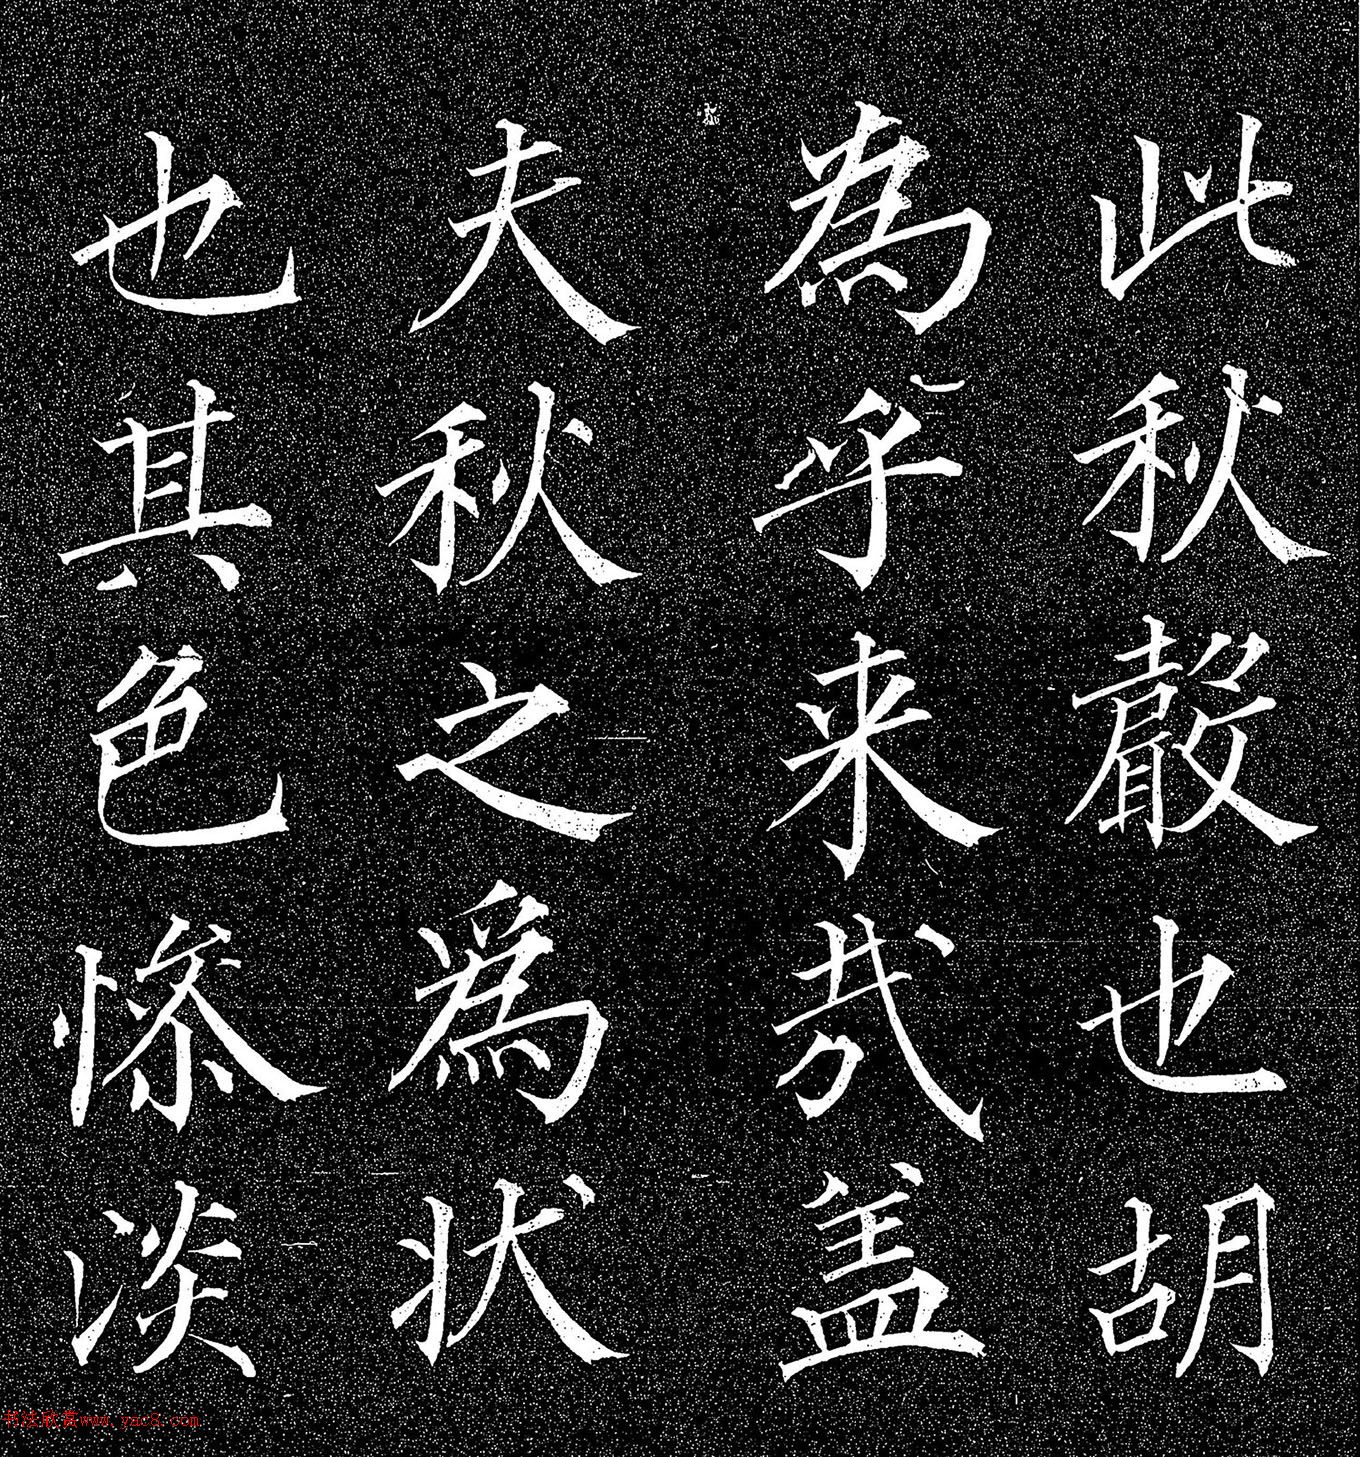 此秋聲也胡
為乎来哉盖
夫秋之爲状
也其色惨淡
书法欣赏www.yac8.com